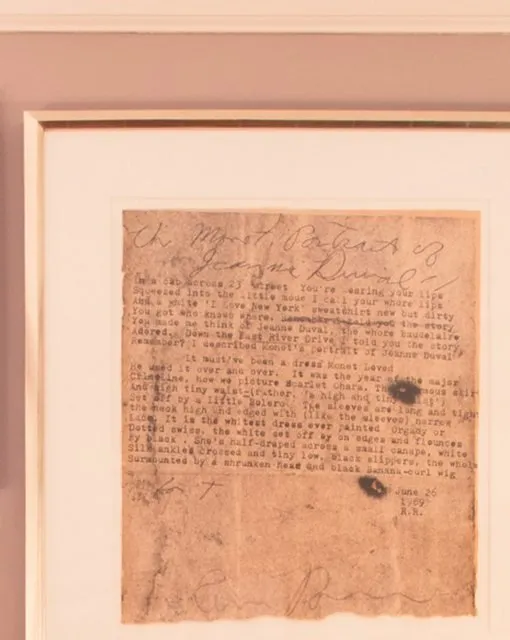 On Monet, Portrait of
Jeanne Duval"
In a cab across 23 Street You're earing your lips
Squeezed into the little moue I call your whore lips
And a white 'I Love New York' sweatshirt new but dirty
You got who knows where. you the story
You made me think of Jeanne Duval, the whore baudelaire
Adored. Down the East River Drive I told you the story
Remember? I described Monet's portrait of Jeanne Duval
it must've been a dress Monet Loved
He used it over and over. It was the year of the major
Crinoline, how we picture Scarlet Ohara. The mous skir
And high tiny waist-(rather, he high and tiny
Set off by a little Bolero The sleeves are long and tight
the neck high and edged with (like the sleeves) narrow
Lace. It is the whitest dress ever painted Orgady or
Dotted swiss, the white set off by on edges and flounces
By black. She's half-draped across a small canape, white
Silk ankles crossed and tiny low, black slippers, the whole
Surmounted by a shrunken-head and black Banana-curl wig
June 26
1989
R.R.